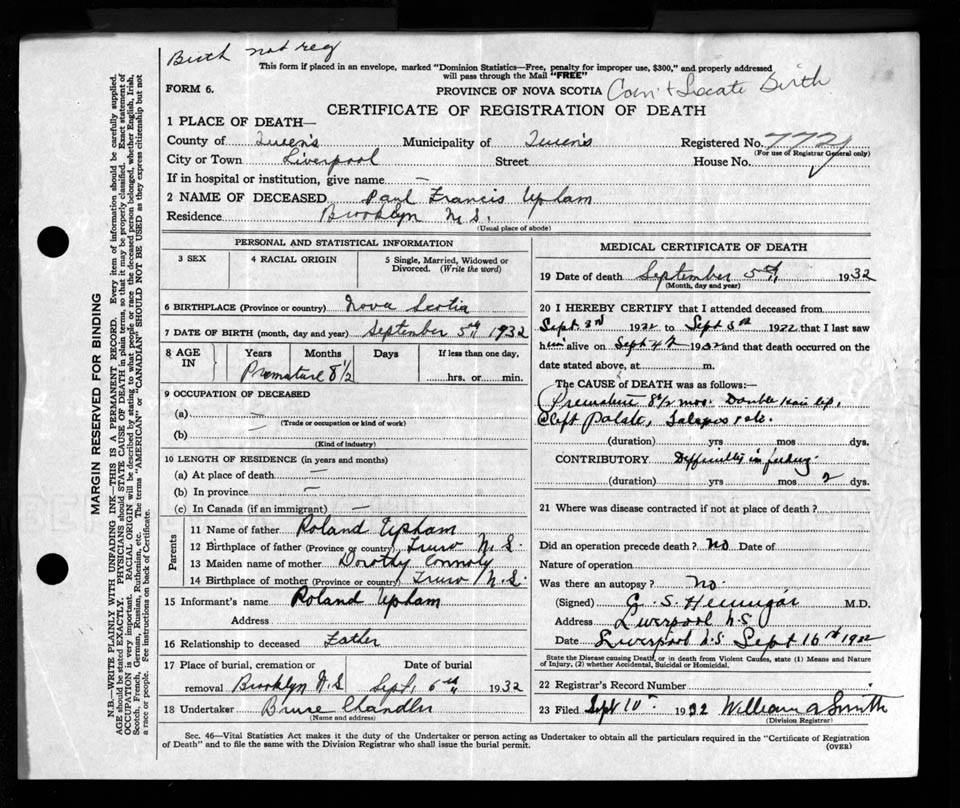 Birth not reg
This form if placed in an envelope, marked "Dominion Statistics—Free, penalty for improper use, $300," and properly addressed
will pass through the Mail "FREE"
FORM 6.
PROVINCE OF NOVA SCOTIA
Locate Birth
CERTIFICATE OF REGISTRATION OF DEATH
1 PLACE OF DEATH—
County of Queen's Municipality of Queens Registered No. 772
(For use of Registrar General only)
City or Town Liverpool Street House No.
If in hospital or institution, give name —
2 NAME OF DECEASED Paul Francis Upham
Residence Brooklyn N.S.
(Usual place of abode)
PERSONAL AND STATISTICAL INFORMATION
3 SEX 4 RACIAL ORIGIN 5 Single, Married, Widowed or
Divorced. (Write the word)
6 BIRTHPLACE (Province or country) Nova Scotia
7 DATE OF BIRTH (month, day and year) September 5th 1932
8 AGE
IN
Years Months Days If less than one day,
Premature 8 1/2 hrs. or min.
9 OCCUPATION OF DECEASED
(a) —
(Trade or occupation or kind of work)
(b) —
(Kind of industry)
10 LENGTH OF RESIDENCE (in years and months)
(a) At place of death —
(b) In province —
(c) In Canada (if an immigrant) —
Parents
11 Name of father Roland Upham
12 Birthplace of father (Province or country) Truro N.S.
13 Maiden name of mother Dorothy Connoly
14 Birthplace of mother (Province or country) Truro N.S.
15 Informant's name Roland Upham
Address
16 Relationship to deceased Father
17 Place of burial, cremation or Date of burial
removal Brooklyn N.S Sept. 6th 1932
18 Undertaker Bruse Chandler
(Name and address)
MEDICAL CERTIFICATE OF DEATH
19 Date of death September 5th 1932
(Month, day and year)
20 I HEREBY CERTIFY that I attended deceased from
Sept 3rd 1932 to Sept 5th 1932 that I last saw
him alive on Sept 4th 1932 and that death occurred on the
date stated above, at m.
The CAUSE OF DEATH was as follows:—
Premature 8 1/2 mos. Double Hair lip,
Cleft Palate, etc.
(duration) yrs mos dys.
CONTRIBUTORY Difficulty in feeding.
(duration) yrs mos 2 dys.
21 Where was disease contracted if not at place of death?
Did an operation precede death? No Date of
Nature of operation
Was there an autopsy? No.
(Signed) G. S. Hennigar M.D.
Address Liverpool N.S.
Date Liverpool N.S. Sept 10th 1932
State the Disease causing Death, or in death from Violent Causes, state (1) Means and Nature
of Injury, (2) whether Accidental, Suicidal or Homicidal.
22 Registrar's Record Number
23 Filed Sept 10th 1932 William A Smith
(Division Registrar)
Sec. 46—Vital Statistics Act makes it the duty of the Undertaker or person acting as Undertaker to obtain all the particulars required in the "Certificate of Registration
of Death" and to file the same with the Division Registrar who shall issue the burial permit.
(OVER)
MARGIN RESERVED FOR BINDING
N.B.—WRITE PLAINLY WITH UNFADING INK—THIS IS A PERMANENT RECORD. Every item of information should be carefully supplied.
AGE should be stated EXACTLY. PHYSICIANS should STATE CAUSE OF DEATH in plain terms, so that it may be properly classified. Exact statement of
OCCUPATION is very important. RACIAL ORIGIN will be described by stating to what people or race the deceased person belonged, whether English, Irish,
Scotch, French, German, Russian, Ruthenian, etc. The terms "AMERICAN" or "CANADIAN" SHOULD NOT BE USED as they express citizenship but not
a race or people. Fee instructions on back of Certificate.